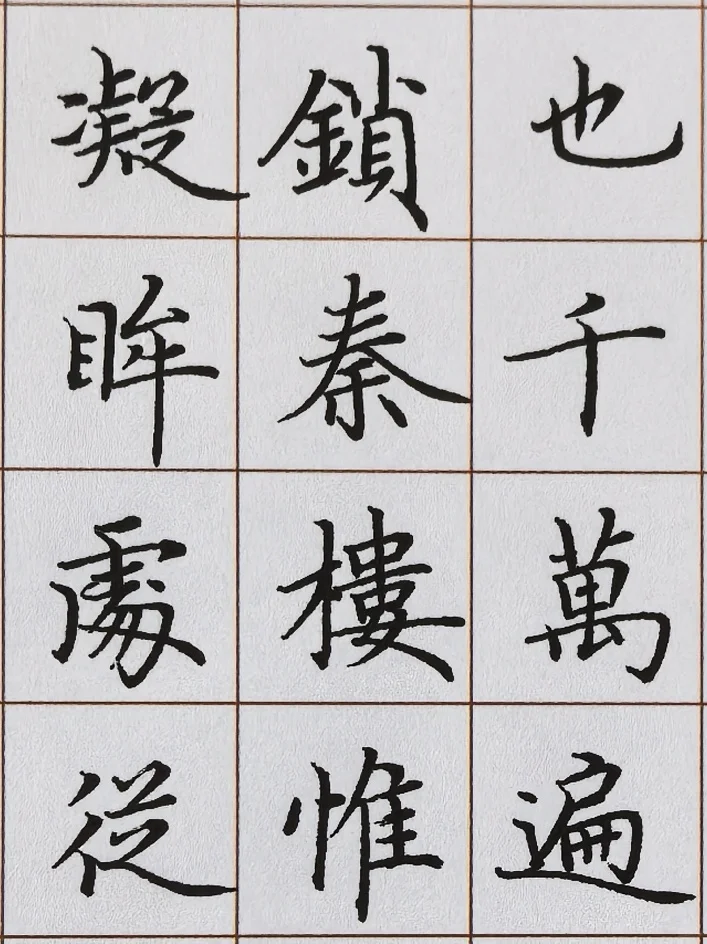 也千萬遍
鎖秦樓惟
凝眸處從